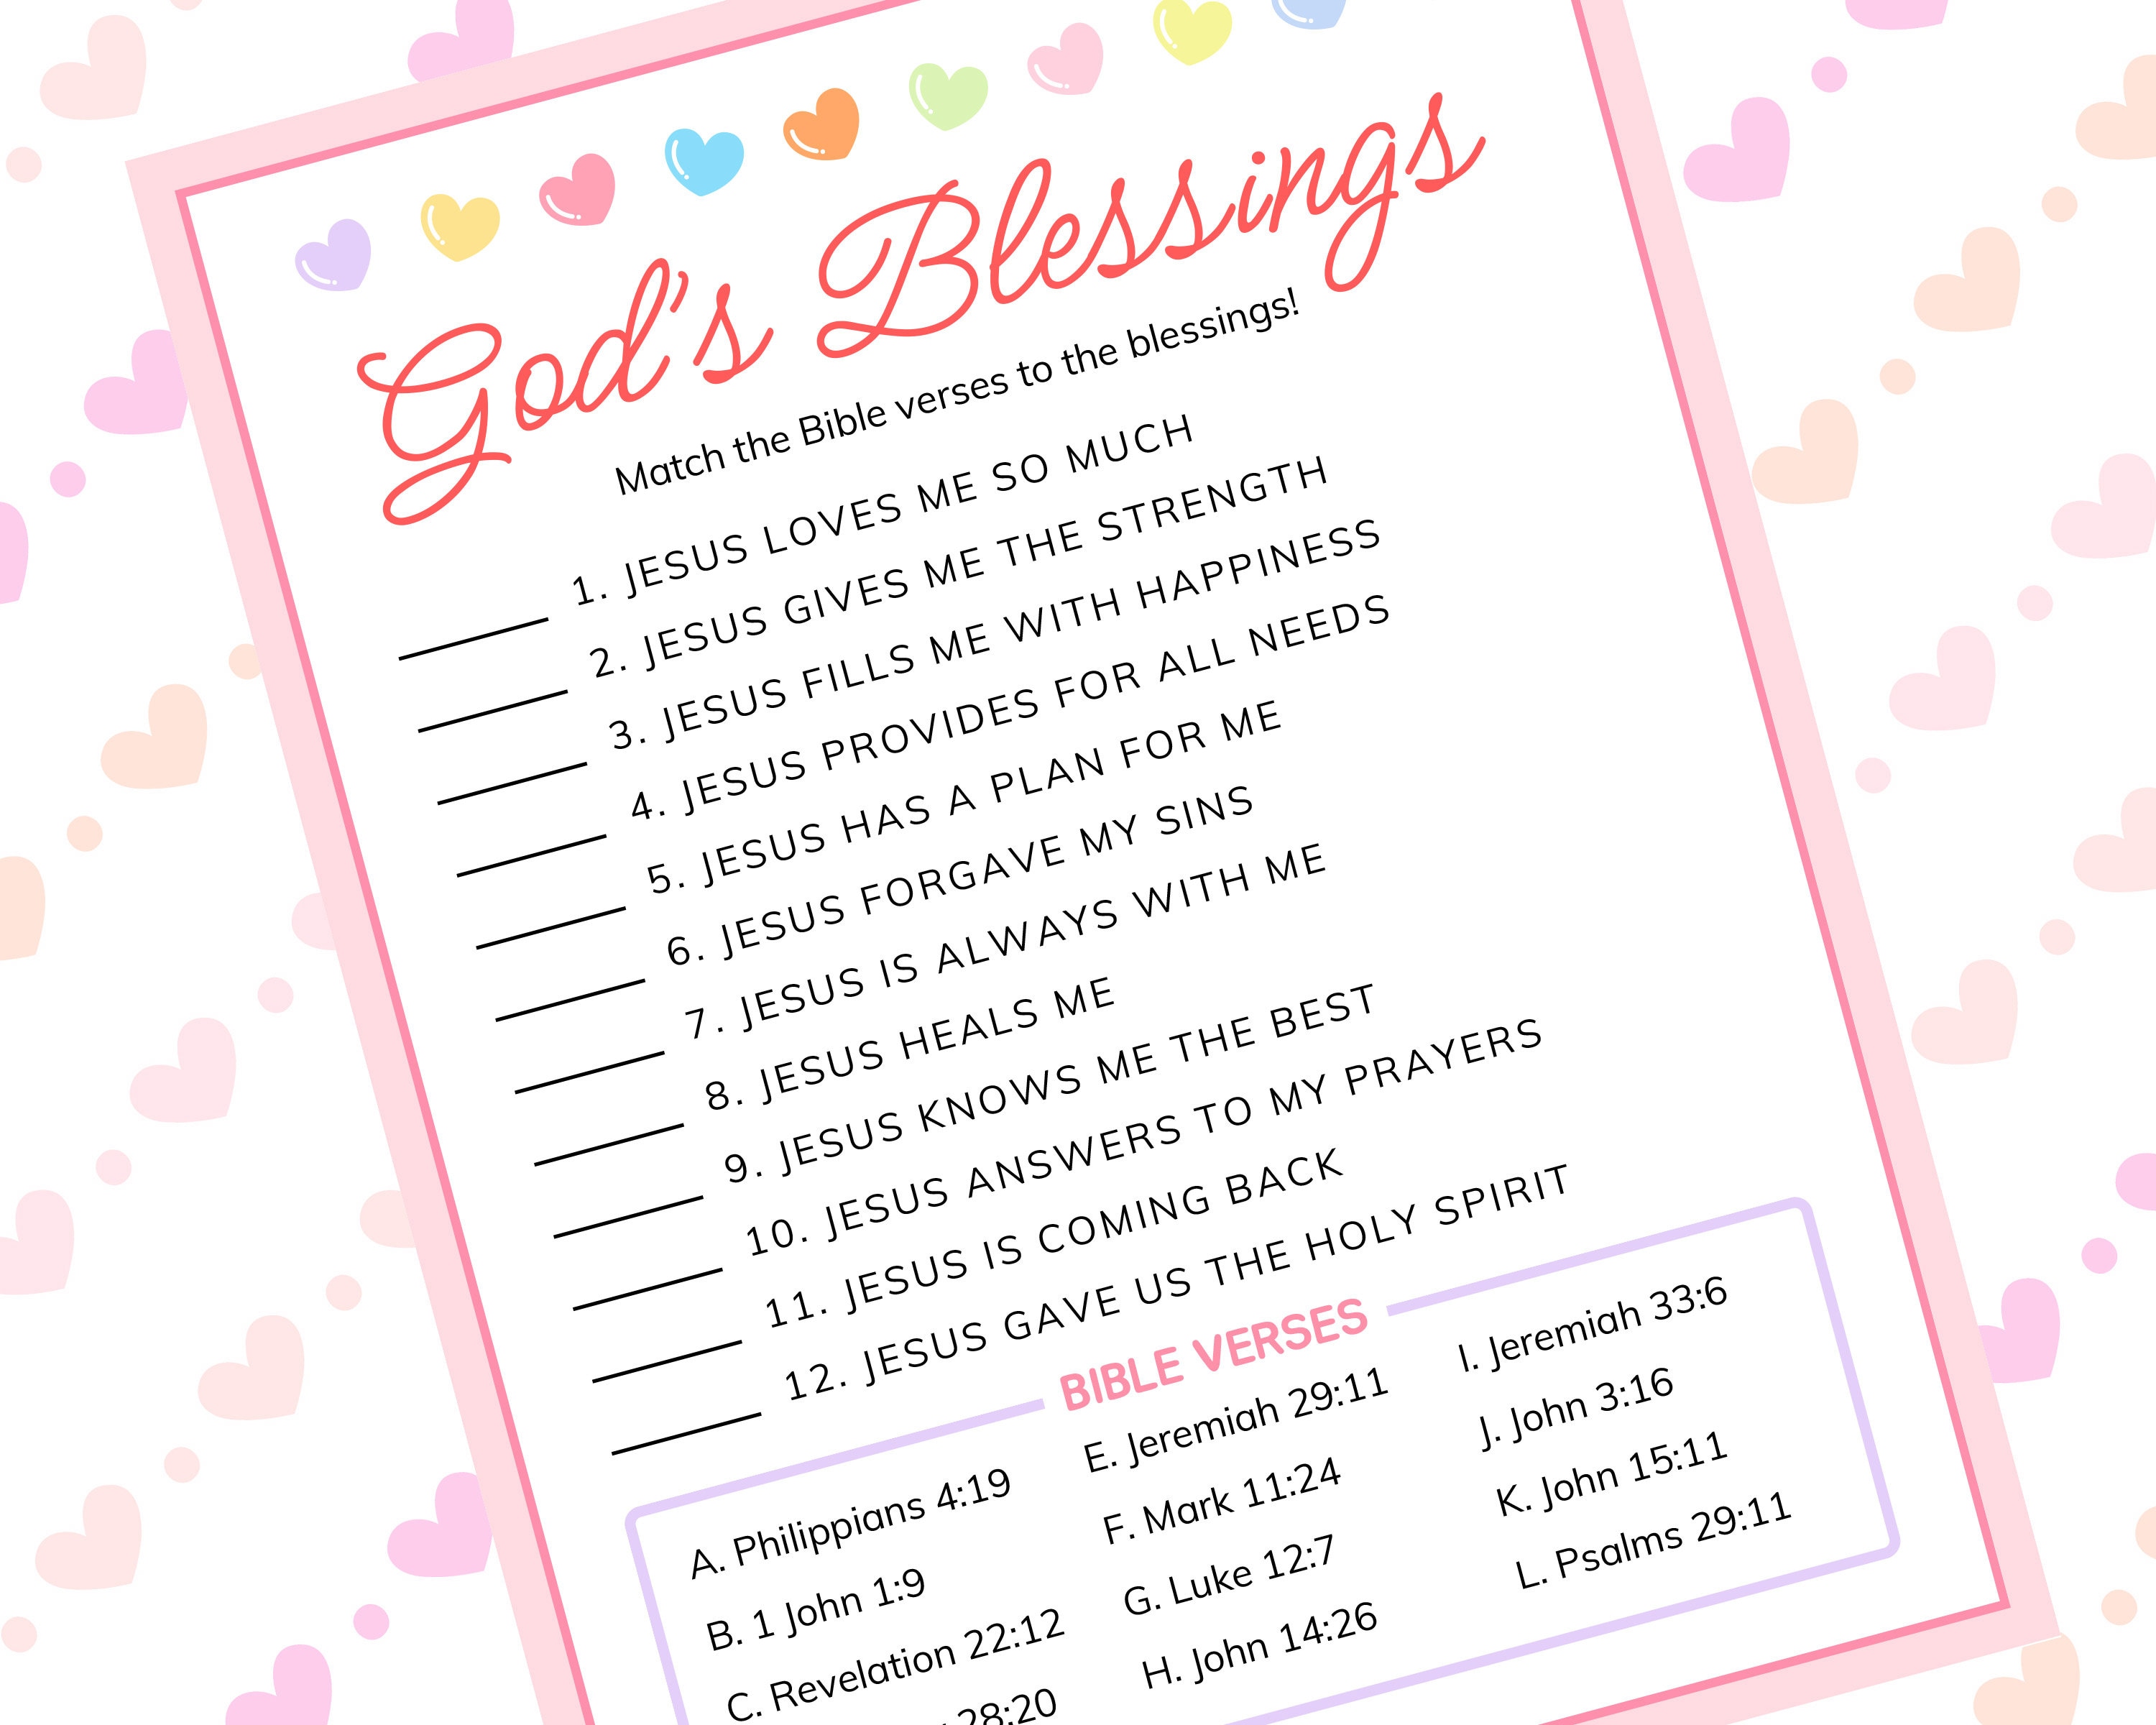 God's Blessings
Match the Bible verses to the blessings!
1. JESUS LOVES ME SO MUCH
2. JESUS GIVES ME THE STRENGTH
3. JESUS FILLS ME WITH HAPPINESS
4. JESUS PROVIDES FOR ALL NEEDS
5. JESUS HAS A PLAN FOR ME
6. JESUS FORGAVE MY SINS
7. JESUS IS ALWAYS WITH ME
8. JESUS HEALS ME
9. JESUS KNOWS ME THE BEST
10. JESUS ANSWERS TO MY PRAYERS
11. JESUS IS COMING BACK
12. JESUS GAVE US THE HOLY SPIRIT
BIBLE VERSES
A. Philippians 4:19
B. 1 John 1:9
C. Revelation 22:12
28:20
E. Jeremiah 29:11
F. Mark 11:24
G. Luke 12:7
H. John 14:26
I. Jeremiah 33:6
J. John 3:16
K. John 15:11
L. Psalms 29:11